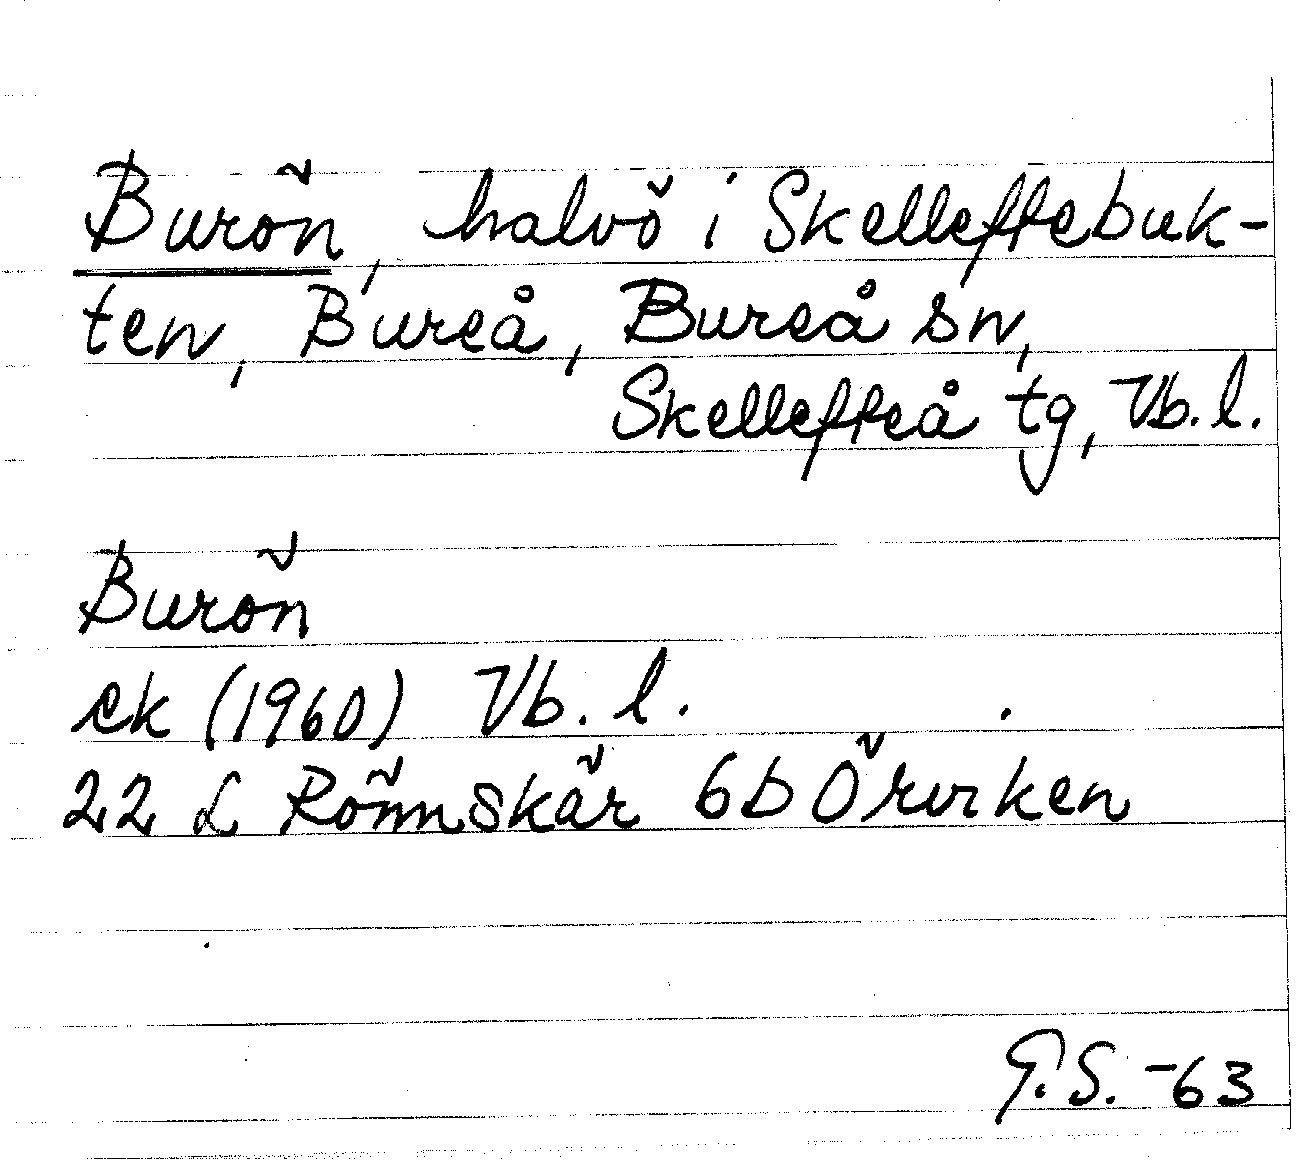 Burön, halvö i Skelleftebuk-
ten, Bureå, Bureå sn,
Skellefteå tg, Vb. l.
Burön
ek (1960) Vb. l.
22 L Rönnskär 6b Örviken
G.S. -63